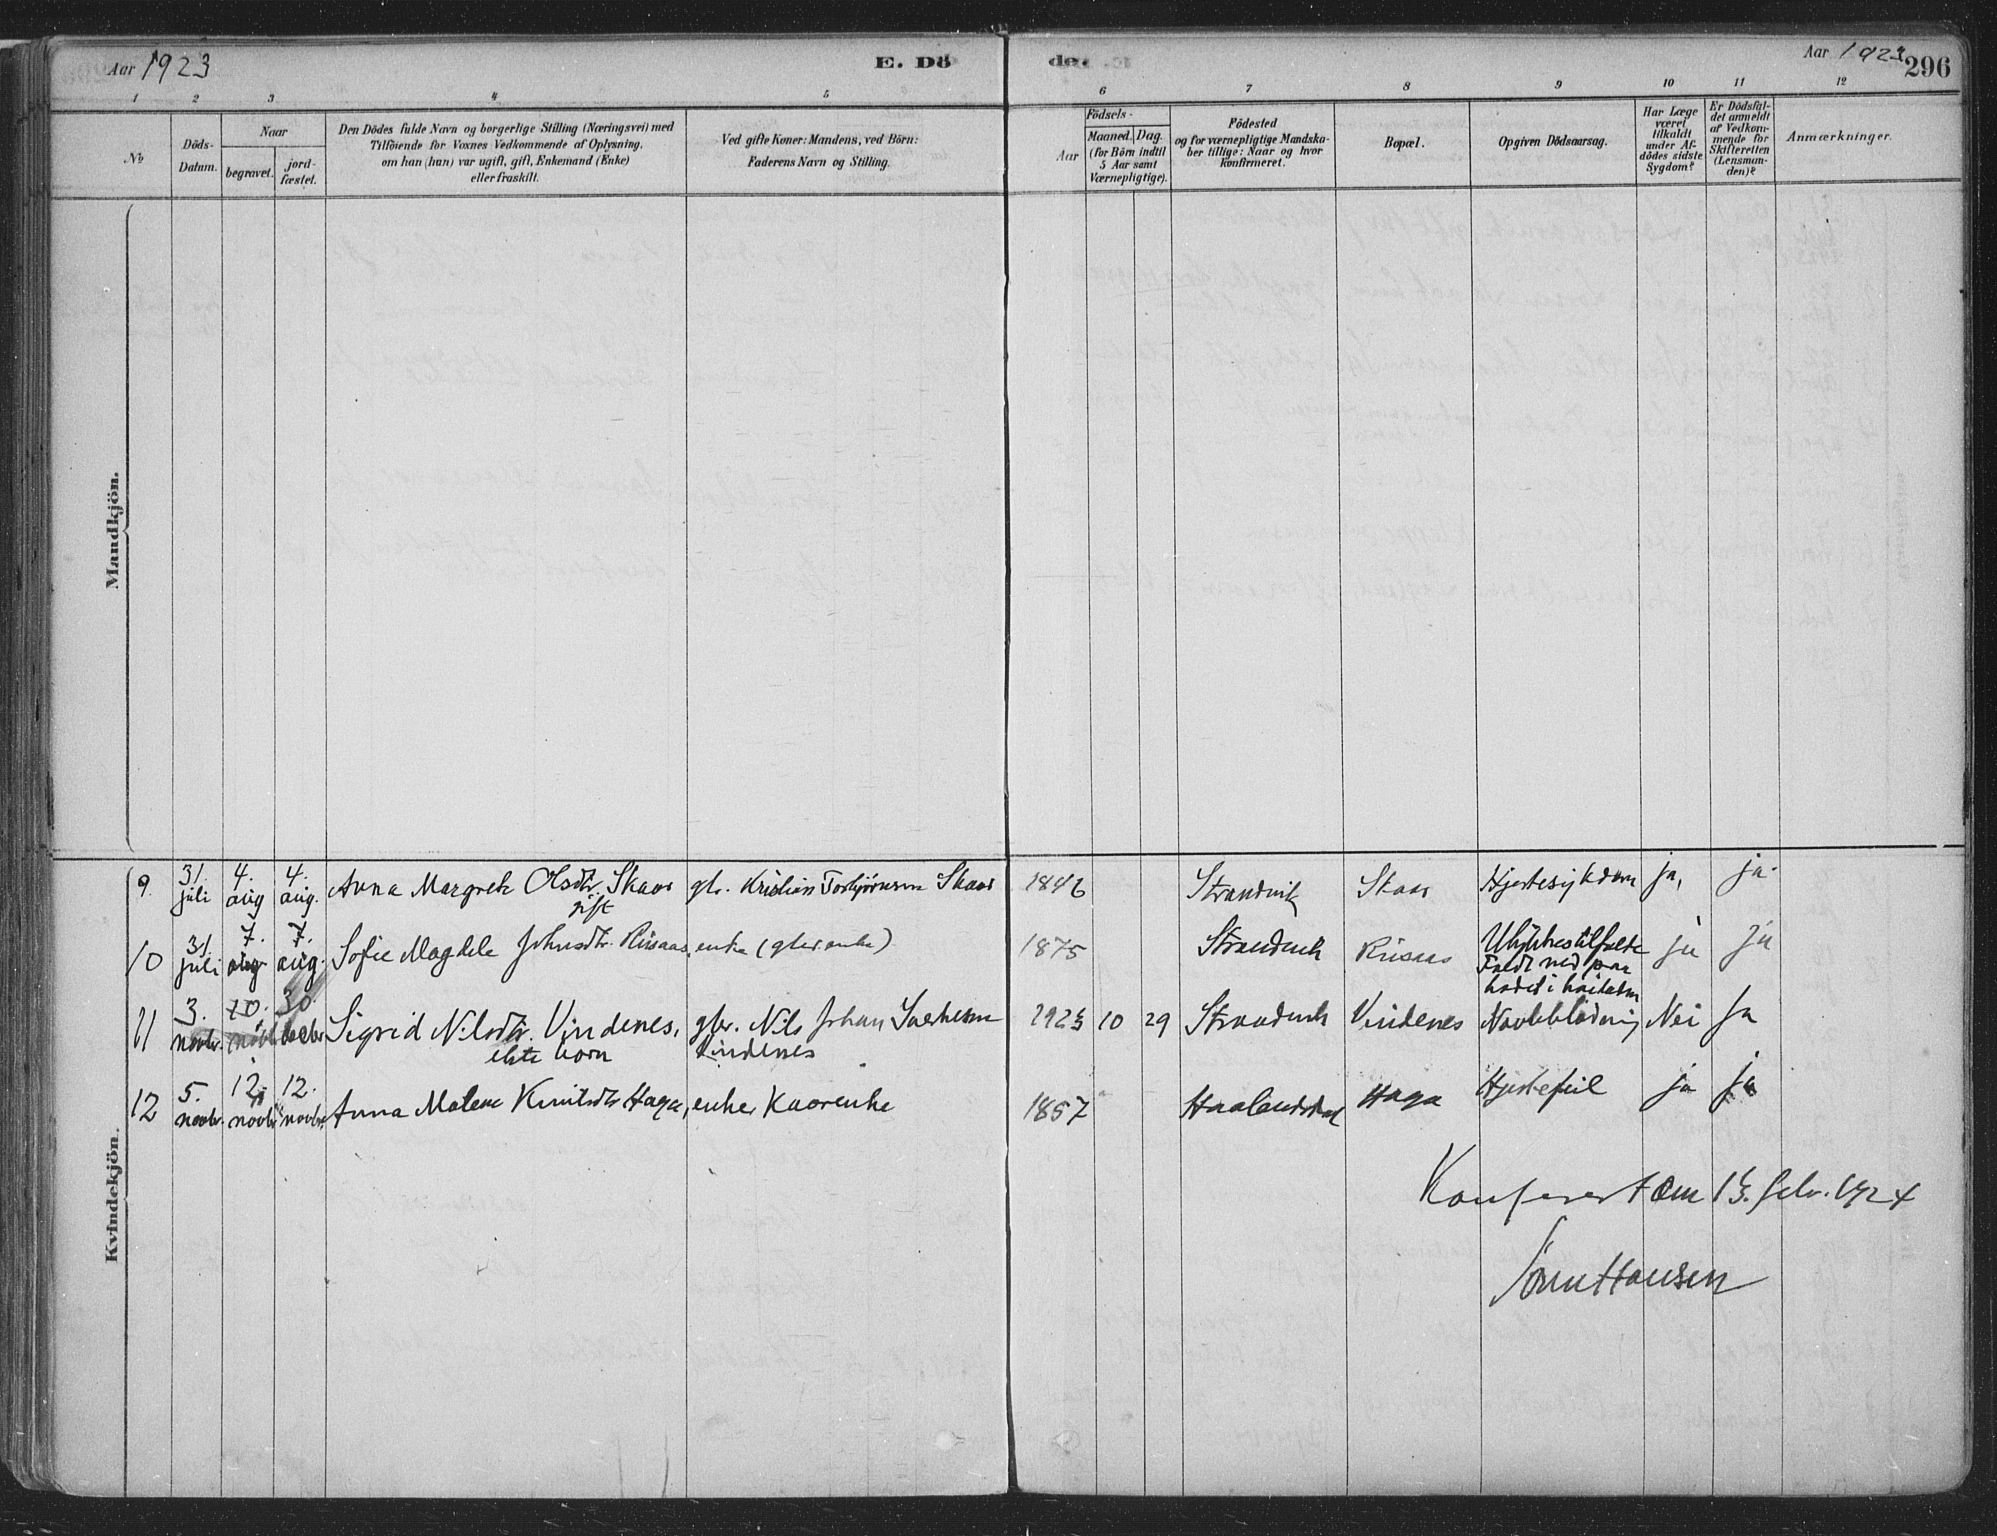 Aar 1923
E. Dö
de.
Aar 1923
296
1 2 3 4 5 6 7 8 9 10 11 12
No
Döds-
Datum.
Naar
begravet.
jord-
fæstet.
Den Dödes fulde Navn og borgerlige Stilling (Næringsvei) med
Tilföiende for Voxnes Vedkommende af Oplysning,
om han (hun) var ugift, gift, Enkemand (Enke)
eller fraskilt.
Ved gifte Koner: Mandens, ved Börn:
Faderens Navn og Stilling.
Födsels-
Aar
Maaned. Dag.
(for Börn indtil
5 Aar samt
Værnepligtige).
Födested
og for værnepligtige Mandska-
ber tillige: Naar og hvor
konfirmeret.
Bopæl.
Opgiven Dödsaarsag.
Har Læge
været
tilkaldt
under Af-
dödes sidste
Sygdom?
Er Dödsfal-
det anmeldt
af Vedkom-
mende for
Skifteretten
(Lensman-
den)?
Anmærkninger.
Mandkjön.
Kvindekjön.
9. 31. juli 4. aug 4. aug. Anna Margrete Olsdtr. Skaar gift gbr. Kristian Torbjörnsen Skaar 1846 Strandvik Skaar Hjertesykdom ja, ja.
10 31. juli 7. aug 7. aug. Sofie Magdele Johnsdtr. Riisaas, enke (gbr enke) 1875 Strandvik Riisaas Ulykkestilfælde
Faldt ned paa
hodet i höiladen ja ja
11 3. novbr. 10. novbr 30. decbr Sigrid Nilsdtr. Vindenes, gbr. Nils Johan 1923 10 29 Strandvik Vindenes Navleblödning Nei Ja
ekte barn Vindenes
12 5. novbr. 12. novbr 12. novbr. Anna Malene Knutsdtr Haga, enke, Kaarenke 1857 Haalandsdal Haga Hjertefeil ja ja
Konferert den 15. febr. 1924
Hansen